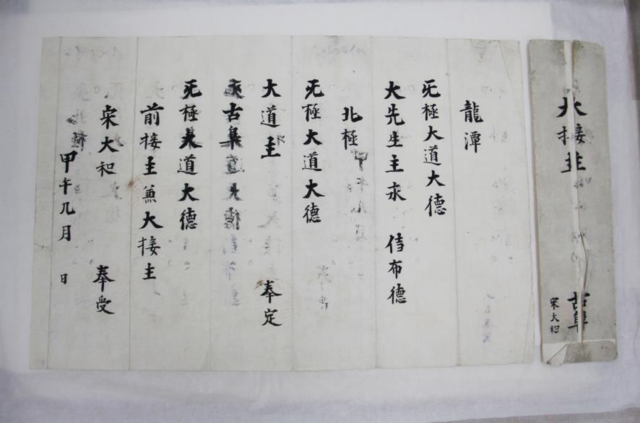 大接主 古阜
宋大和
龍潭
旡極大道大德
大先生主求 侍布德
北極
旡極大道大德
大道主 奉定
旡極大道大德
前接主兼大接主
宋大和 奉受
甲午九月 日